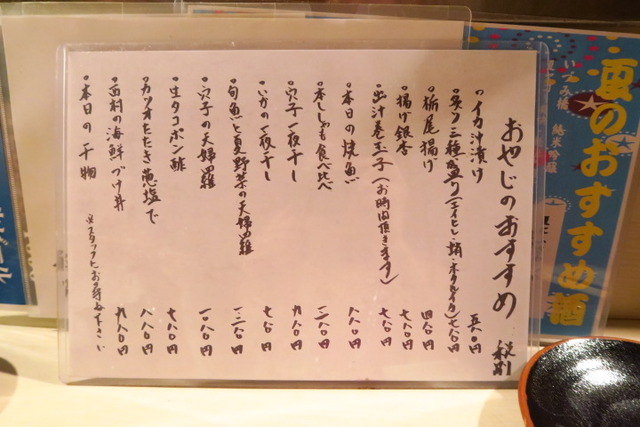 夏のおすすめ酒
いづみ橋
純米吟醸
おやじのおすすめ 税別
・イカ沖漬け 五八〇円
・炙り三種盛り(エイヒレ・蛸・ホタルイカ) 七八〇円
・栃尾揚げ 四八〇円
・揚げ銀杏 七八〇円
・出汁巻玉子(お時間頂きます) 七八〇円
・本日の焼魚 八八〇円
・本ししゃも食べ比べ 一二八〇円
・穴子一夜干し 九八〇円
・いかの一夜干し 七八〇円
・旬魚と夏野菜の天婦羅 一二八〇円
・穴子の天婦羅 一〇八〇円
・生タコポン酢 七八〇円
・カツオたたき葱塩で 八八〇円
・西村の海鮮づけ丼 九八〇円
・本日の干物 ※スタッフにお尋ね下さい